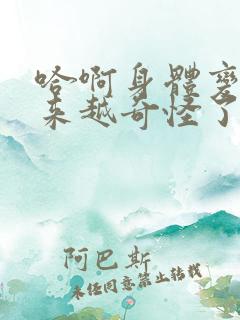 哈啊身體變
來越奇怪了
阿巴斯
未经同意禁止转载